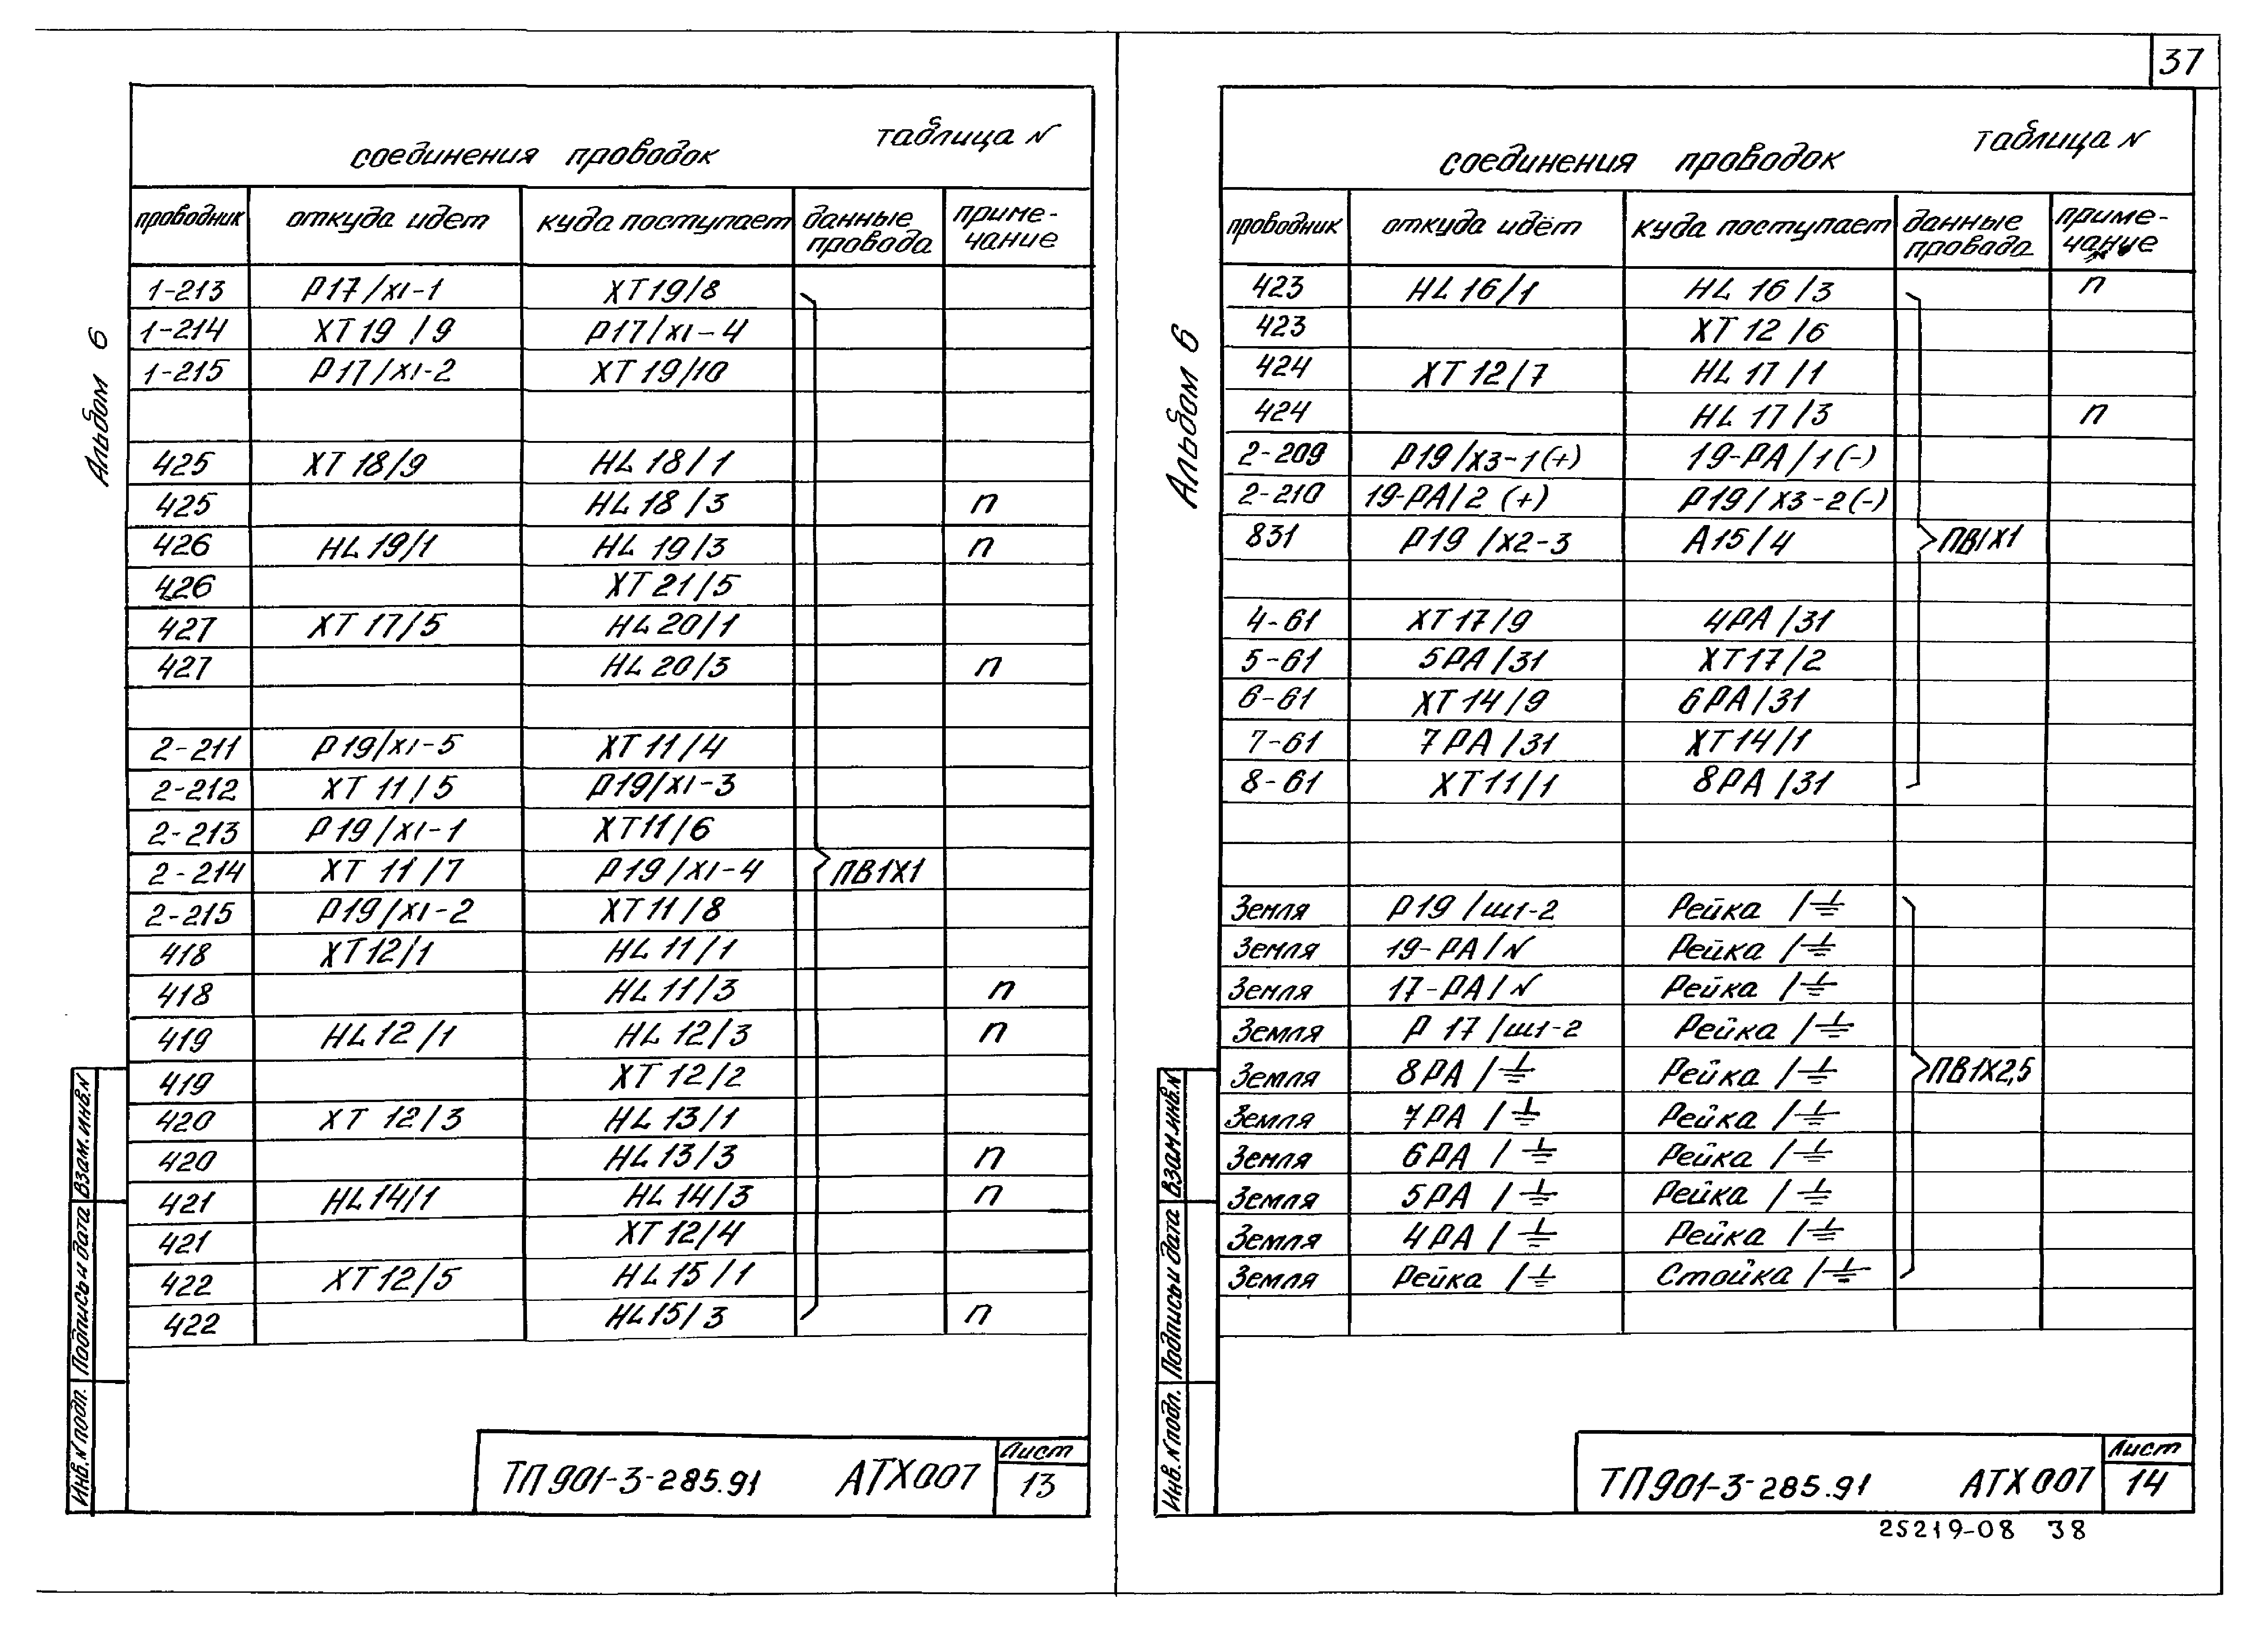 37
Альбом 6
таблица N
соединения проводок
проводник откуда идет куда поступает данные провода приме-чание
1-213 Р17/Х1-1 ХТ19/8
1-214 ХТ19/9 Р17/Х1-4
1-215 Р17/Х1-2 ХТ19/10
425 ХТ18/9 HL18/1
425 HL18/3 п
426 HL19/1 HL19/3 п
426 ХТ21/5
427 ХТ17/5 HL20/1
427 HL20/3 п
2-211 Р19/Х1-5 ХТ11/4
2-212 ХТ11/5 Р19/Х1-3
2-213 Р19/Х1-1 ХТ11/6
2-214 ХТ11/7 Р19/Х1-4 ПВ1Х1
2-215 Р19/Х1-2 ХТ11/8
418 ХТ12/1 HL11/1
418 HL11/3 п
419 HL12/1 HL12/3 п
419 ХТ12/2
420 ХТ12/3 HL13/1
420 HL13/3 п
421 HL14/1 HL14/3 п
421 ХТ12/4
422 ХТ12/5 HL15/1
422 HL15/3 п
Инв. N подл. Подпись и дата Взам. инв. N
ТП901-3-285.91 АТХ007 Лист 13
Альбом 6
таблица N
соединения проводок
проводник откуда идёт куда поступает данные провода приме-чание
423 HL16/1 HL16/3 п
423 ХТ12/6
424 ХТ12/7 HL17/1
424 HL17/3 п
2-209 Р19/Х3-1(+) 19-РА/1(-)
2-210 19-РА/2(+) Р19/Х3-2(-)
831 Р19/Х2-3 А15/4 ПВ1Х1
4-61 ХТ17/9 4РА/31
5-61 5РА/31 ХТ17/2
6-61 ХТ14/9 6РА/31
7-61 7РА/31 ХТ14/1
8-61 ХТ11/1 8РА/31
Земля Р19/Ш1-2 Рейка/⏚
Земля 19-РА/N Рейка/⏚
Земля 17-РА/N Рейка/⏚
Земля Р17/Ш1-2 Рейка/⏚
Земля 8РА/⏚ Рейка/⏚ ПВ1Х2,5
Земля 7РА/⏚ Рейка/⏚
Земля 6РА/⏚ Рейка/⏚
Земля 5РА/⏚ Рейка/⏚
Земля 4РА/⏚ Рейка/⏚
Земля Рейка/⏚ Стойка/⏚
Инв. N подл. Подпись и дата Взам. инв. N
ТП901-3-285.91 АТХ007 Лист 14
25219-08 38